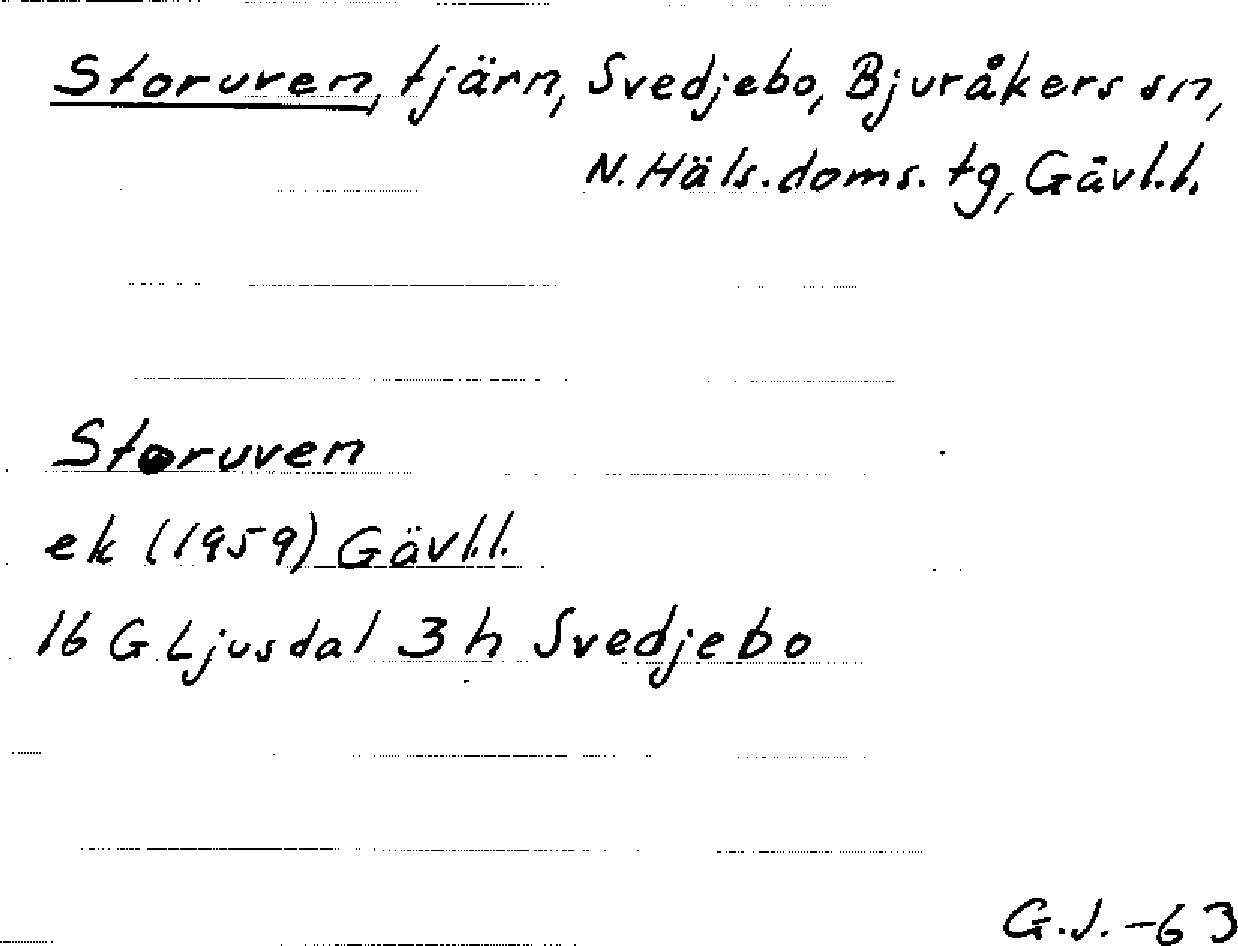 Storuven, tjärn, Svedjebo, Bjuråkers sn,
N. Häls. doms. tg, Gävl.l.
Storuven
ek (1959) Gävl.l.
16 G Ljusdal 3 h Svedjebo
G.J. -63